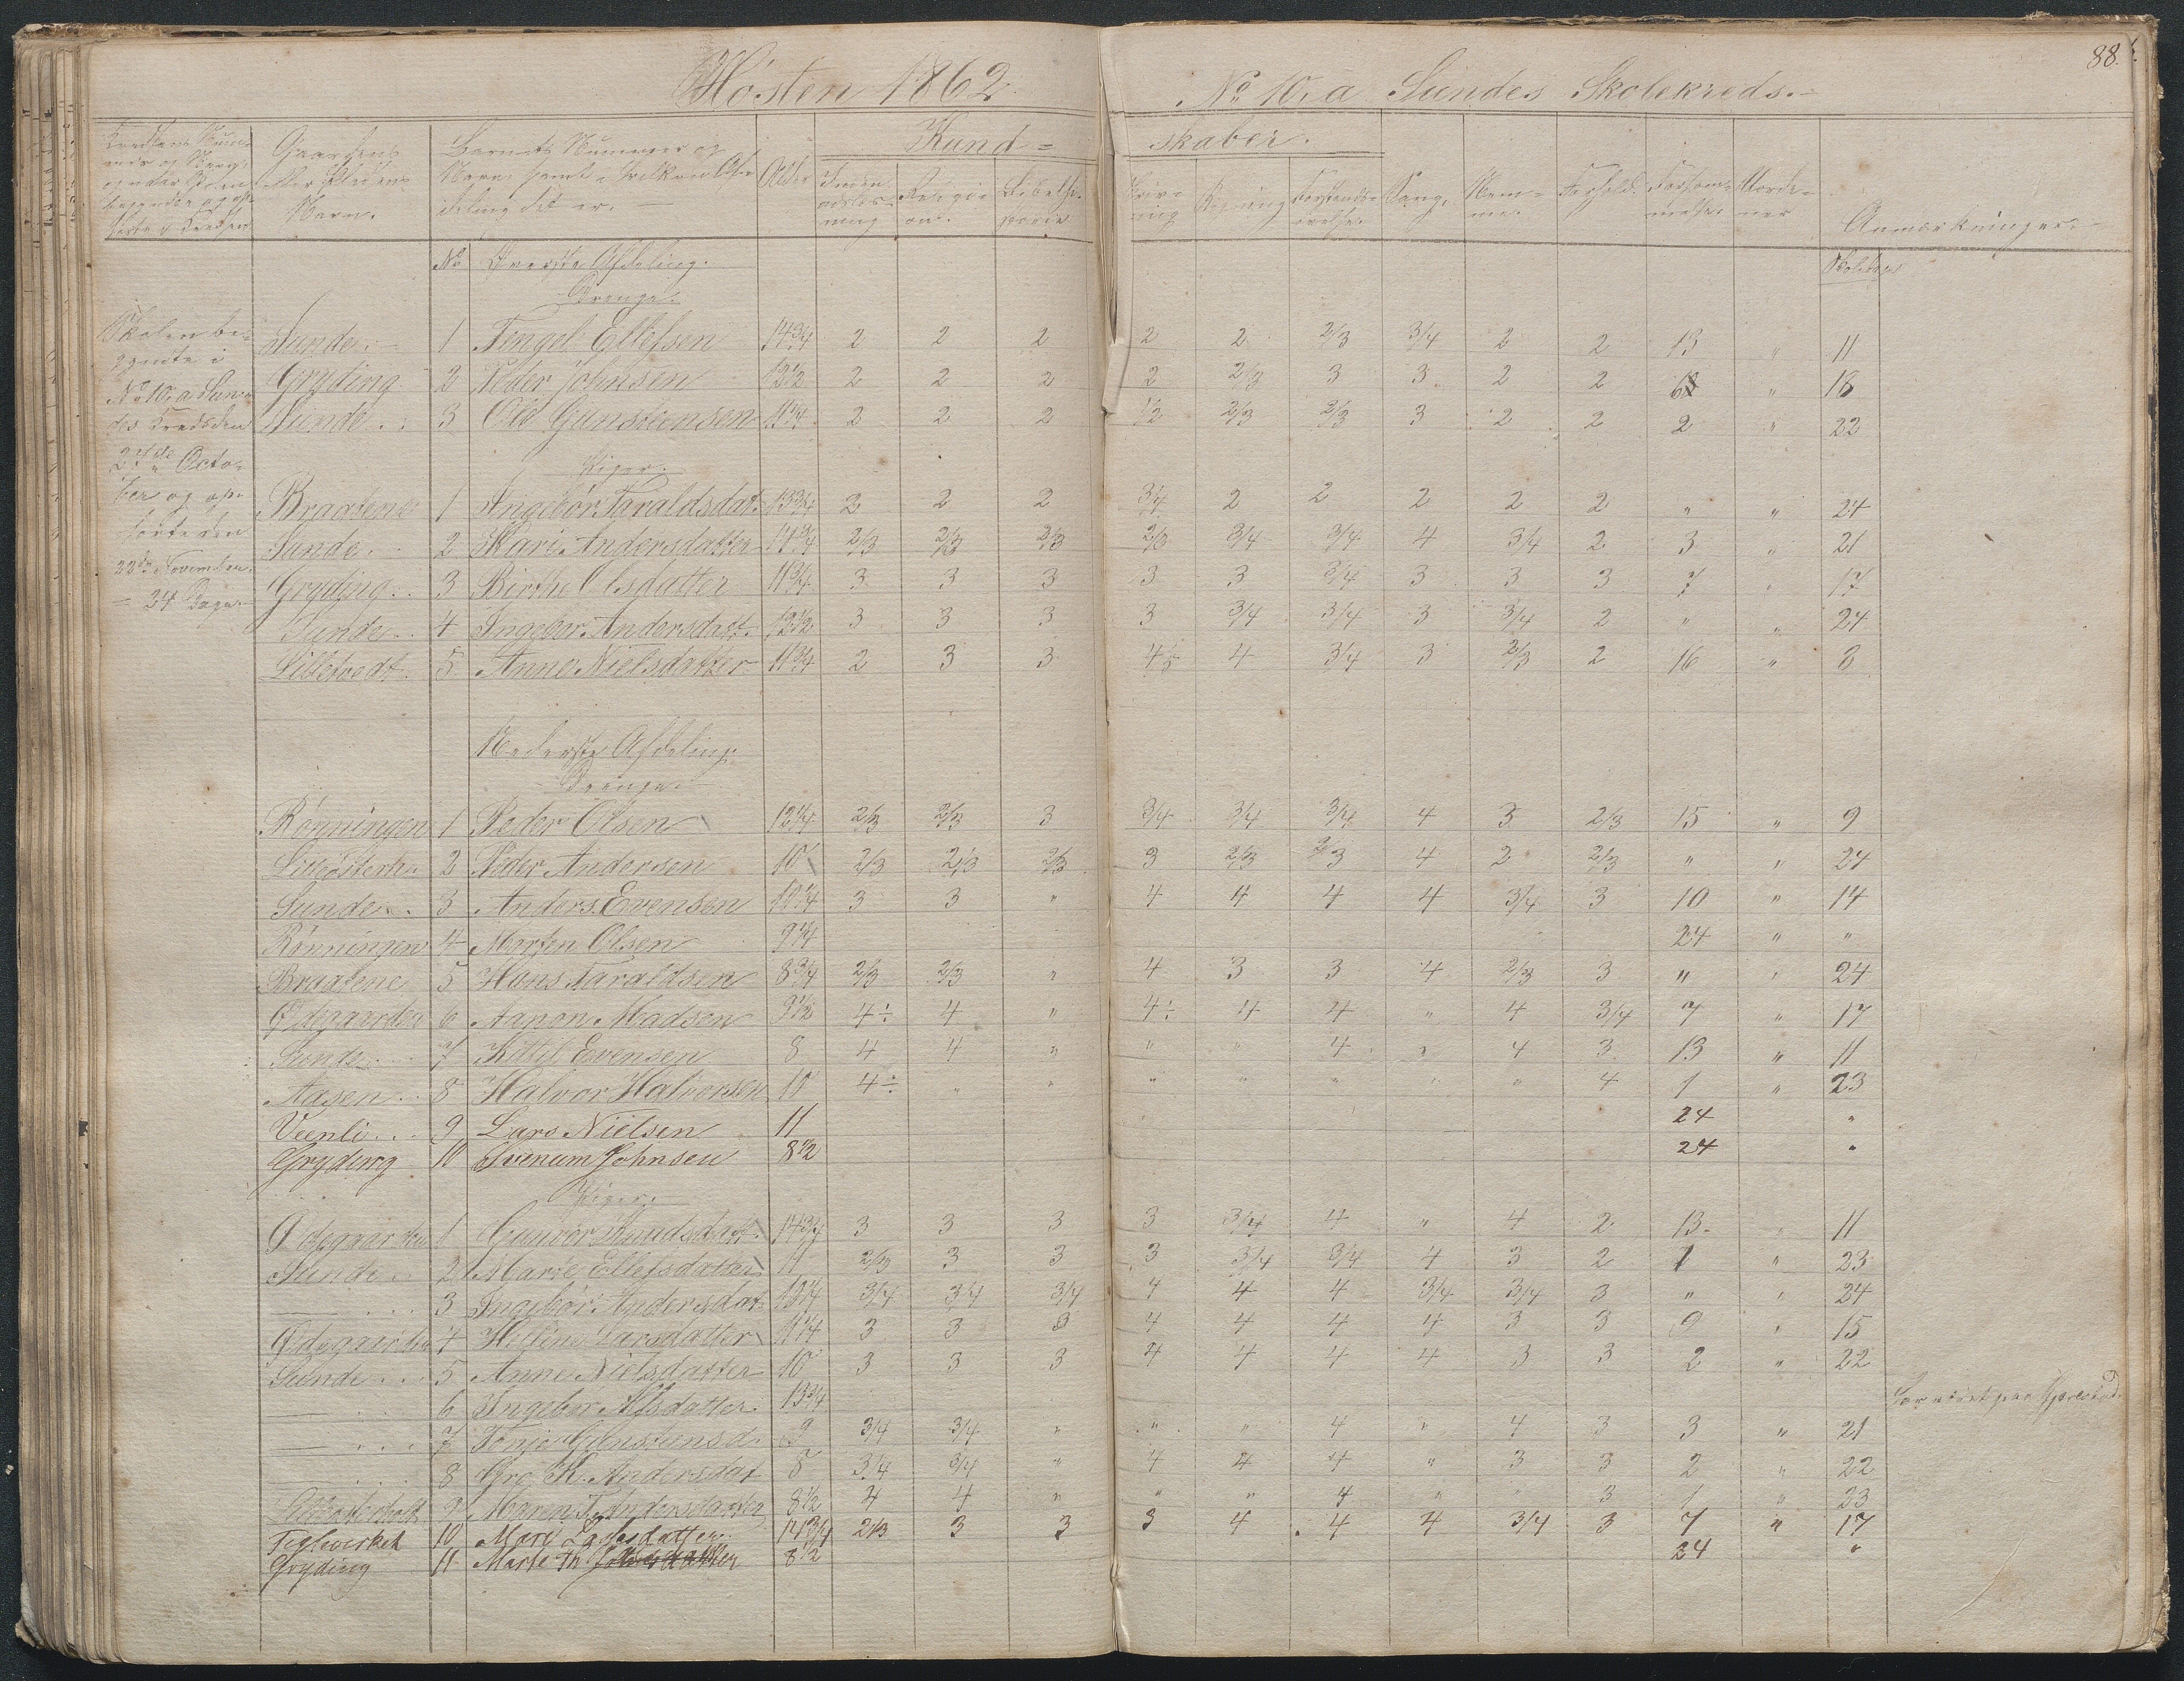 88.
Hösten 1862.
No 10, a Sundes Skolekreds.
Kund=
skaber.
Gaardens eller Pladsens Navn.
Barnets Nummer og Navn, samt i hvilken Afdeling det er. —
Alder
Religion.
Sang.
Anmærkninger.
No Øverste Afdeling.
Skoledage
Drenge.
Skolen begyndte i No 10, a Sundes Kreds den 27de October og ophørte den 22de November. — 24 Dage.
Sunde. 1 Tengel Ellefsen 14 3/4 2 2 2 2 2 2/3 3/4 2 2 13 " 11
Gryding 2 Peder Johnsen 12 1/2 2 2 2 2 2/3 3 3 2 2 " 18
Sunde 3 Ole Gunstensen 11 1/4 2 2 2 1/2 2/3 2/3 3 2 2 2 " 22
Piger.
Braatene 1 Ingebor Taraldsdat. 13 3/4 2 2 2 3/4 2 2 2 2 2 " " 24
Sunde 2 Kari Andersdatter 14 3/4 2/3 2/3 2/3 2/3 3/4 3/4 4 3/4 2 3 " 21
Gryding 3 Birthe Olsdatter 11 3/4 3 3 3 3 3 3/4 3 3 3 7 " 17
Sunde 4 Ingebor Andersdatt. 12 1/2 3 3 3 3 3/4 3/4 3 3/4 2 " " 24
Lilletvedt 5 Anne Nielsdatter 11 3/4 2 3 3 4÷ 4 3/4 3 2/3 2 16 " 8
Nederste Afdeling.
Drenge.
Rönningen 1 Peder Olsen 12 1/4 2/3 2/3 3 3/4 3/4 3/4 4 3 2/3 15 " 9
2 Peder Andersen 10 2/3 2/3 2/3 3 2/3 2/3 4 2 2/3 " " 24
Sunde 3 Anders Evensen 10 1/4 3 3 " 4 4 4 4 3/4 3 10 " 14
Rönningen 4 Morten Olsen 9 1/4 24 " "
Braatene 5 Hans Taraldsen 8 3/4 2/3 2/3 " 4 3 3 4 2/3 3 " " 24
Ødegaarden 6 Aanon Madsen 9 1/2 4÷ 4 " 4÷ 4 4 " 4 3/4 7 " 17
Sunde 7 Kittil Evensen 8 4 4 " " " 4 " 4 3 13 " 11
Aasen 8 Halvor Halvorsen 10 4÷ " " " " " " " 4 1 " 23
Veenli 9 Lars Nielsen 11 24 "
Gryding 10 Svenum Johnsen 8 1/2 24 "
Piger.
Ødegaarden 1 Gunvor Knudsdatt. 14 3/4 3 3 3 3 3/4 4 " 4 2 13 " 11
Sunde 2 Marie Ellefsdatter 11 2/3 3 3 3 3/4 3/4 4 3 2 1 " 23
— 3 Ingebor Andersdat. 3/4 3/4 3/4 4 4 4 3/4 3/4 3 " " 24
Ødegaarden 4 Helene Larsdatter 11 1/4 3 3 3 4 4 4 4 3 3 9 " 15
Sunde 5 Anne Nielsdatter 10 3 3 3 4 4 4 4 3 3 2 " 22
— 6 Ingebor Alfsdatter 13 3/4
— 7 Tonje Gunstensd. 9 3/4 3/4 " " " 4 " 4 3 3 " 21
8 Gro K. Andersdat 8 3/4 3/4 " 4 4 4 " 3 3 2 " 22
9 Maren T. Andersdatter 8 1/2 4 4 " " " 4 " " 3 1 " 23
Teglverket 10 Mari Larsdatter 14 3/4 2/3 3 3 3 4 4 4 3/4 3 7 " 17
Gryding 11 Marte Th. 8 1/2 24 "